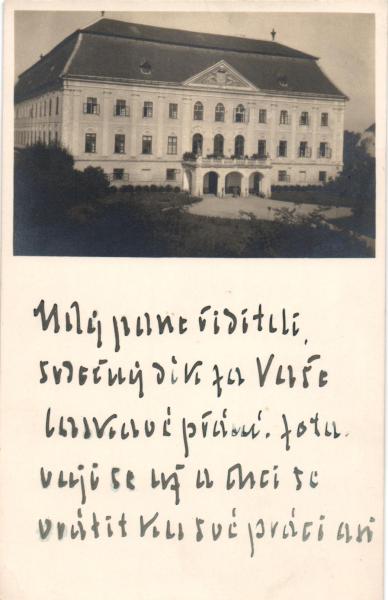 Milý pane řiditeli,
srdečný dík za Vaše
laskavé přání. Zota-
vuji se už a chci se
vrátit ku své práci asi